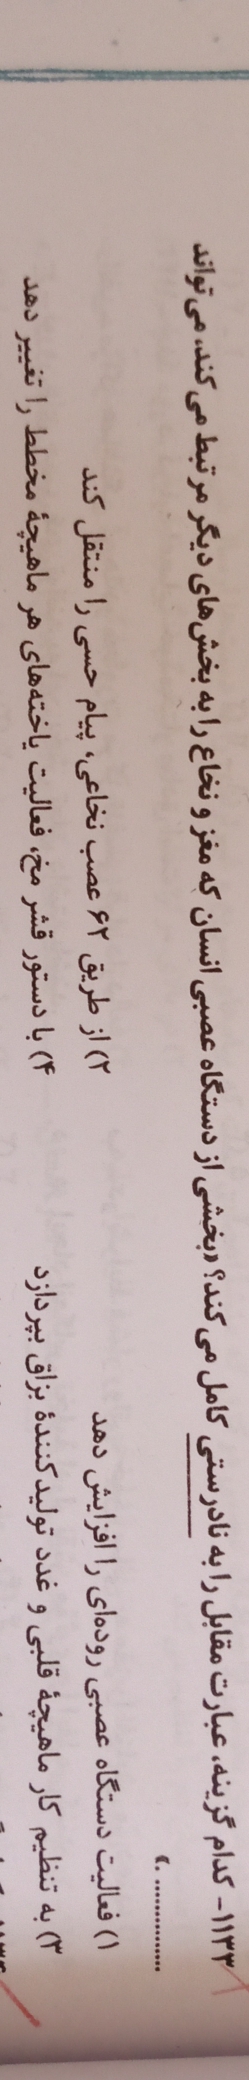 ۱۱۳۳- کدام گزینه، عبارت مقابل را به نادرستی کامل می‌کند؟ «بخشی از دستگاه عصبی انسان که مغز و نخاع را به بخش‌های دیگر مرتبط می‌کند، می‌تواند
.............. .»
۱) فعالیت دستگاه عصبی روده‌ای را افزایش دهد
۲) از طریق ۶۲ عصب نخاعی، پیام حسی را منتقل کند
۳) به تنظیم کار ماهیچهٔ قلبی و غدد تولیدکنندهٔ بزاق بپردازد
۴) با دستور قشر مخ، فعالیت یاخته‌های هر ماهیچهٔ مخطط را تغییر دهد